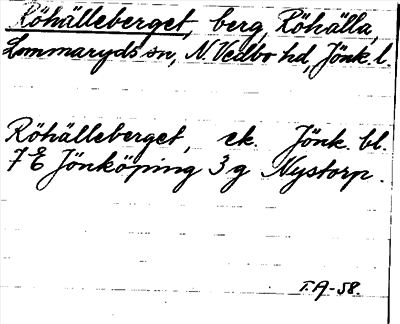 Röhälleberget, berg, Röhälla,
Lommaryds sn, N. Vedbo hd, Jönk. l.
Röhälleberget, ek. Jönk. bl.
7 E Jönköping 3 g Nystorp.
T.A-58.